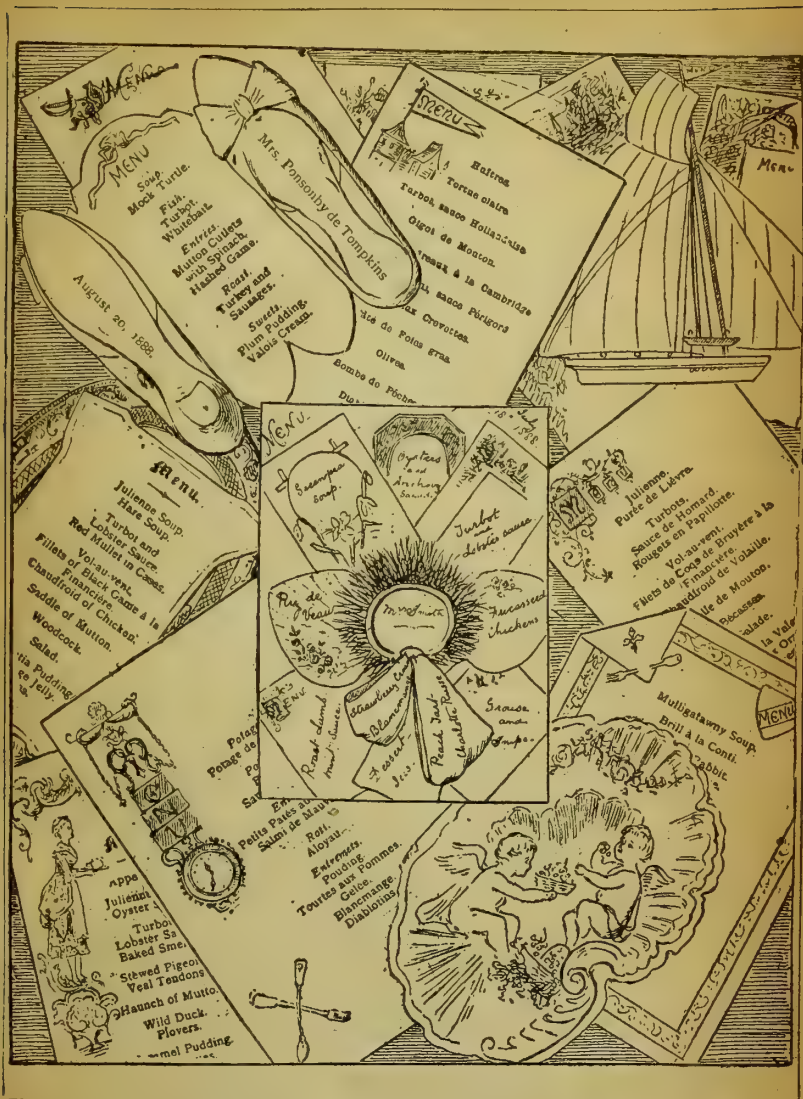 MENU
MENU
Soup.
Mock Turtle.
Fish.
Turbot.
Whitebait.
Entrées.
Mutton Cutlets
with Spinach,
Hashed Game.
Roast.
Turkey and
Sausages.
Sweets.
Plum Pudding.
Valois Cream.
Mrs. Ponsonby de Tompkins
August 20, 1888.
MENU
Huîtres
Tortue claire
Turbot, sauce Hollandaise
Gigot de Mouton.
à la Cambridge
sauce Périgord
aux Crevettes.
Pâté de Foies gras.
Olives.
Bombe de
MENU
Menu.
Julienne Soup.
Hare Soup.
Turbot and
Lobster Sauce.
Red Mullet in Cases.
Vol-au-vent,
Fillets of Black Game à la
Financière.
Chaudfroid of Chicken.
Saddle of Mutton.
Woodcock.
Salad.
Pudding
Jelly.
MENU.
18 July 1888
Soup.
Oysters
and
Anchovy
Turbot
and
Lobster sauce
Riz de
Veau
Mrs Smith
Fricasseed
Chickens
MENU
Roast Lamb
mint sauce.
Strawberry Cream
Blancmange
Peach Tart
Charlotte Russe
Dessert
Ices.
Grouse
and
Julienne.
Purée de Lièvre.
Turbots,
Sauce de Homard.
Rougets en Papillotte.
Vol-au-vent.
Filets de Coqs de Bruyère à la
Financière.
Chaudfroid de Volaille.
de Mouton.
Bécasses.
Salade.
Mulligatawny Soup.
Brill à la Conti.
MENU
MENU
Potage
Potage de
Petits Patés au
Salmi de
Rôti.
Aloyau.
Entremets.
Pouding
Tourtes aux Pommes.
Gelée.
Blancmange.
Diablotins.
Julienne
Oyster
Turbot
Lobster Sa
Baked Smel
Stewed Pigeon
Veal Tendons
Haunch of Mutto
Wild Duck.
Plovers.
Pudding.